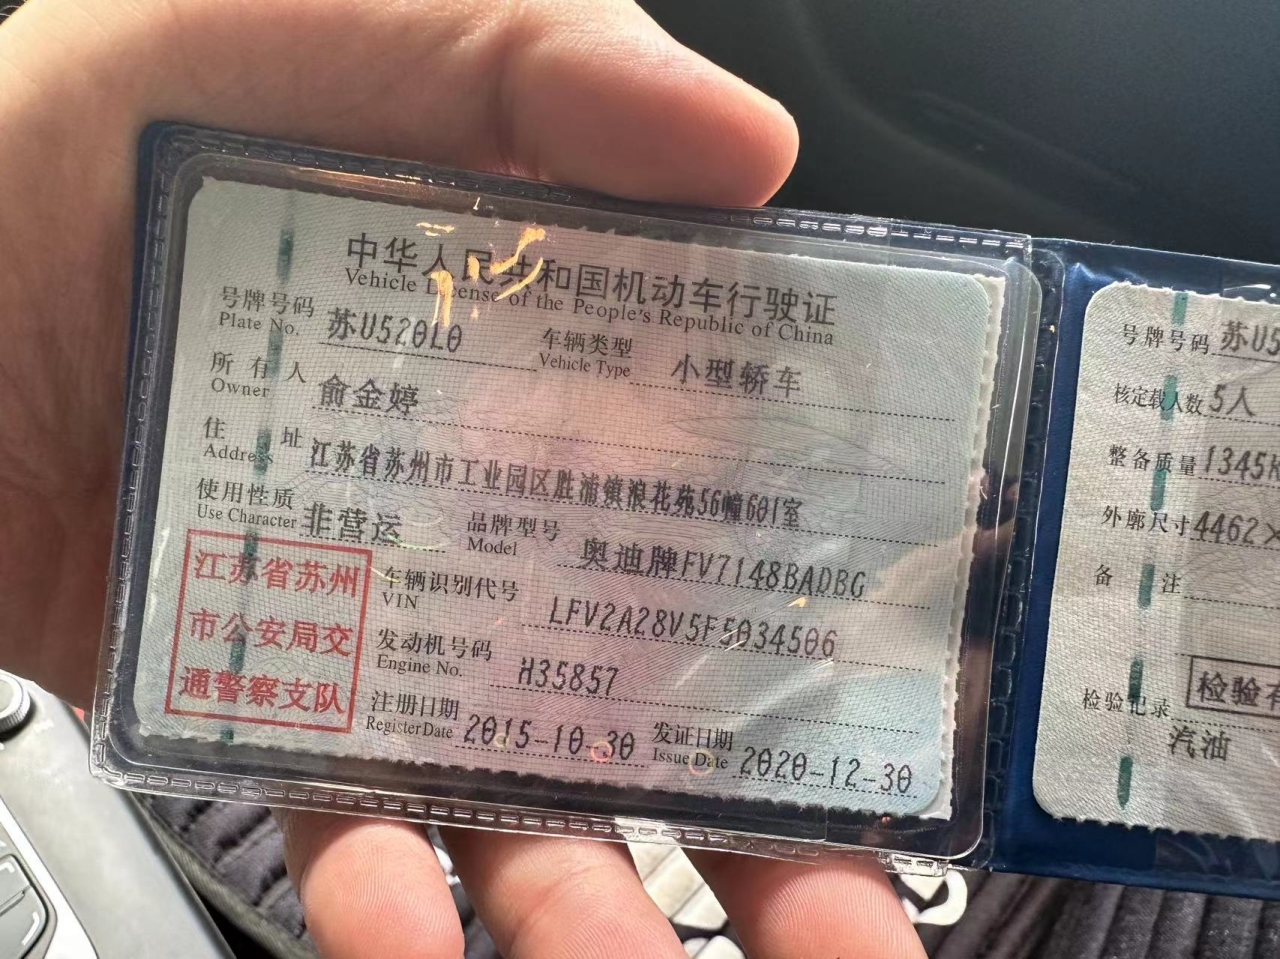 中华人民共和国机动车行驶证
Vehicle License of the People's Republic of China
号牌号码 苏U520L0 车辆类型 小型轿车
Plate No. Vehicle Type
所有人 俞金婷
Owner
住址 江苏省苏州市工业园区胜浦镇浪花苑56幢601室
Address
使用性质 非营运 品牌型号 奥迪牌FV7148BADBG
Use Character Model
江苏省苏州
市公安局交
通警察支队
车辆识别代号 LFV2A28V5F5034506
VIN
发动机号码 H35857
Engine No.
注册日期 2015-10-30 发证日期 2020-12-30
Register Date Issue Date
号牌号码 苏U5
核定载人数 5人
整备质量 1345
外廓尺寸 4462×
备注
检验记录 检验
汽油